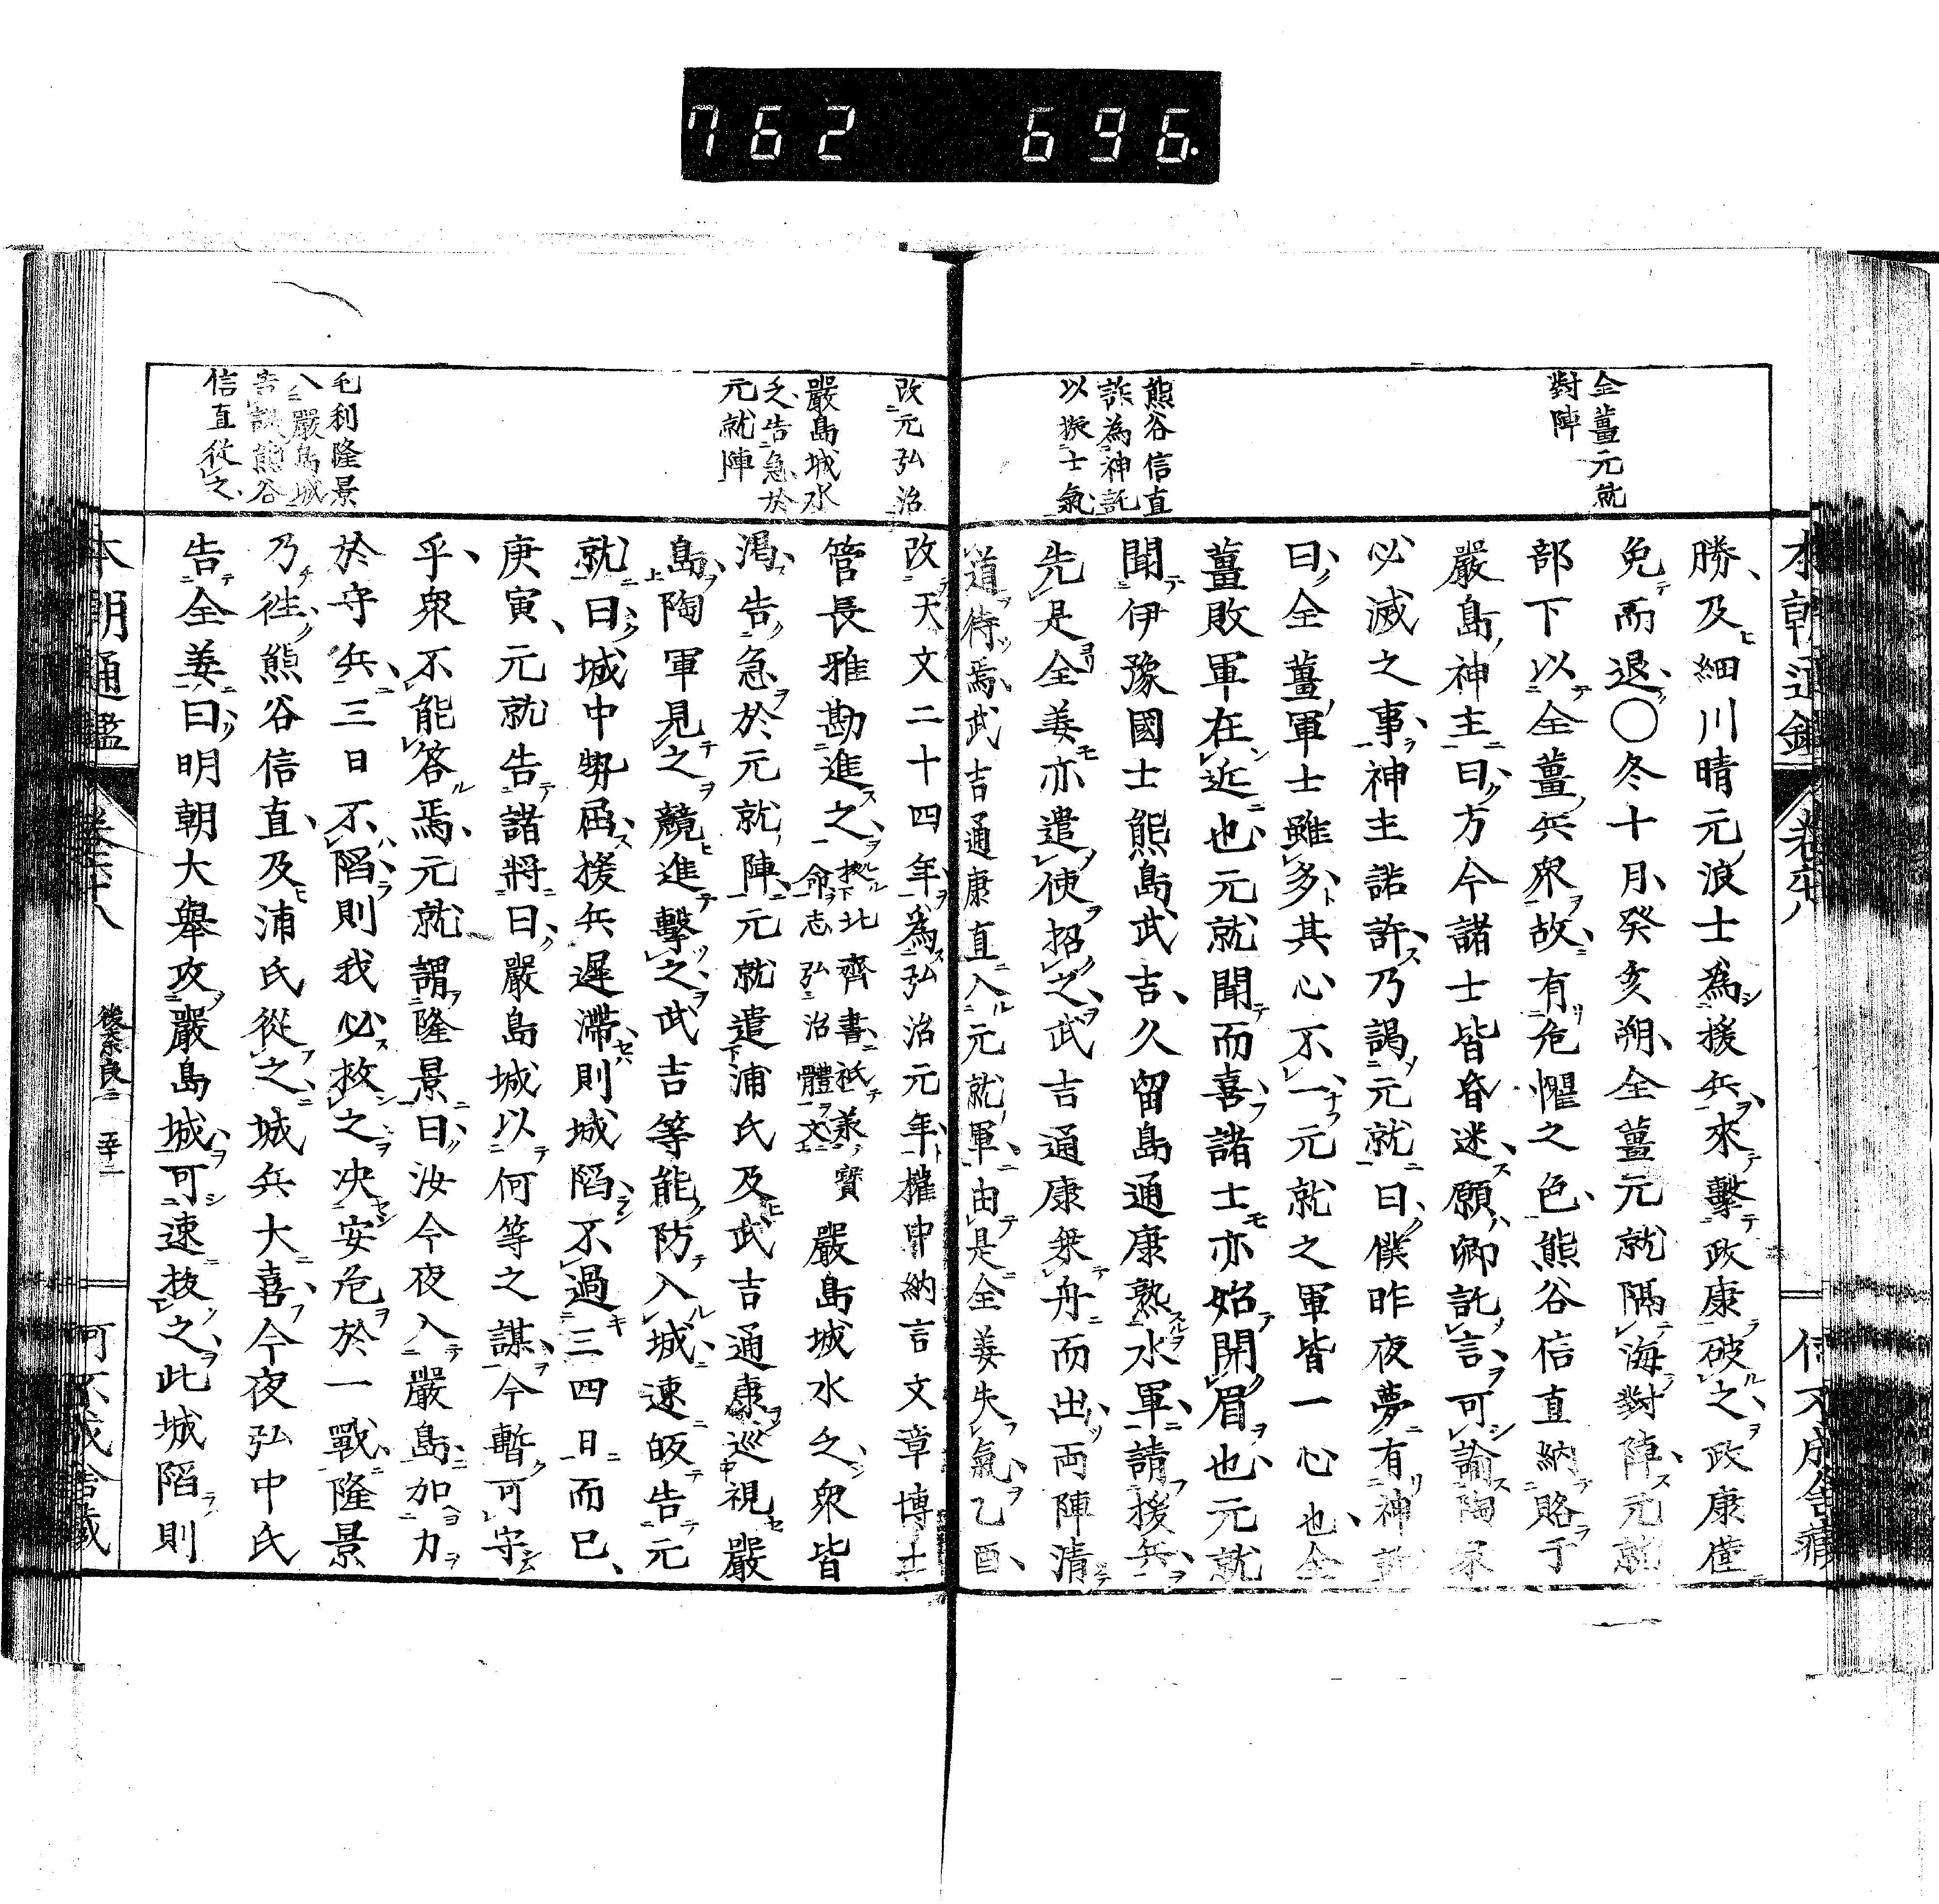 762 696.
全薑元就
對陣
熊谷信直
詐為神託
以振士氣
本朝通鑑 卷六十八
勝及細川晴元浪士為援兵來擊政康破之政康僅
免而退〇冬十月癸亥朔全薑元就隔海對陣元就
部下以全薑兵衆故有危懼之色熊谷信直納賂于
嚴島神主曰方今諸士皆昏迷願卿託言可諭陶氏
必滅之事神主諾許乃謁元就曰僕昨夜夢有神
曰全薑軍士雖多其心不一元就之軍皆一心也全
薑敗軍在近也元就聞而喜諸士亦始開眉也元就
聞伊豫國士能島武吉久留島通康熟水軍請援兵
先是全姜亦遣使招之武吉通康乗舟而出両陣清
道待焉武吉通康直入元就軍由是全姜失氣乙酉
改元弘治
嚴島城水
乏告急於
元就陣
毛利隆景
入嚴島城
告訣熊谷
信直從之
改天文二十四年為弘治元年權中納言文章博士
管長雅勘進之 拠北齊書祗兼寶命志弘治體文 嚴島城水乏衆皆
渇告急於元就陣元就遣浦氏及武吉通康巡視嚴
島陶軍見之競進擊之武吉等能防入城速皈告元
就曰城中勢屈援兵遲滯則城陷不過三四日而已
庚寅元就告諸將曰嚴島城以何等之謀今暫可守
乎衆不能答焉元就謂隆景曰汝今夜入嚴島加力
於守兵三日不陷則我必救之決安危於一戰隆景
乃徃熊谷信直及浦氏從之城兵大喜今夜弘中氏
告全姜曰明朝大舉攻嚴島城可速抜之此城陷則
本朝通鑑 卷六十八 後奈良二 五十二